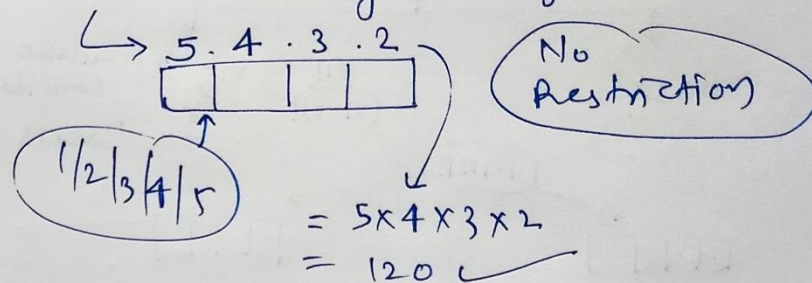 5 . 4 . 3 . 2
No
Restriction
1/2/3/4/5
= 5×4×3×2
= 120